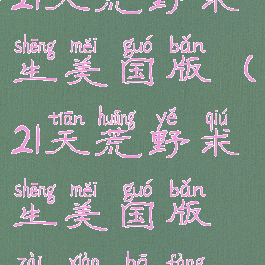 21天荒野求
shēng měi guó bǎn
生美国版(
tiān huāng yě qiú
21天荒野求
shēng měi guó bǎn
生美国版
zài xiàn bō fàng